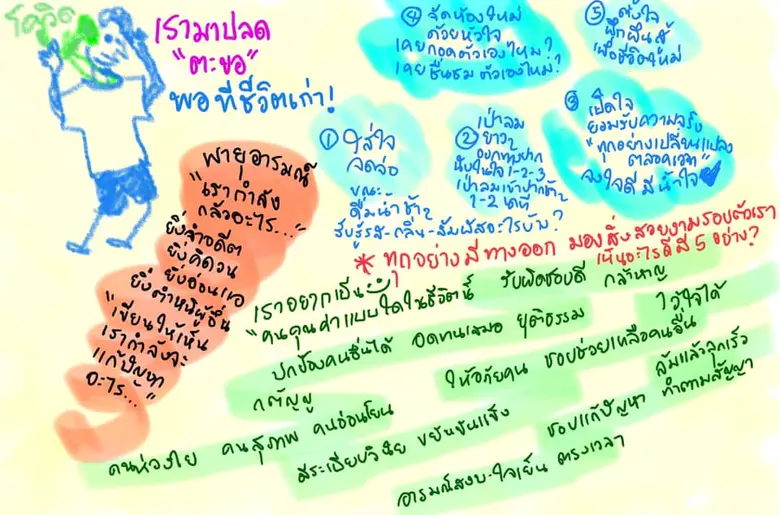 โควิด
เรามาปลด
"ตะขอ"
พอทีชีวิตเก่า!
พายุอารมณ์
"เรากำลัง
กลัวอะไร..."
ยิ่งจำอดีต
ยิ่งคิดวน
ยิ่งอ่อนแอ
ยิ่งตำหนิผู้อื่น
"เขียนให้เห็น
เรากำลังจะ
แก้ปัญหา"
อะไร...
① ใส่ใจ
จดจ่อ
ขณะ
ดื่มน้ำช้าๆ
รับรู้รส-กลิ่น-สัมผัสอะไรบ้าง?
② เป่าลม
ยาวๆ
ออกทางปาก
นับในใจ 1-2-3
เป่าลมเข้าปากช้าๆ
1-2 นาที
③ เปิดใจ
ยอมรับความจริง
"ทุกอย่างเปลี่ยนแปลง
ตลอดเวลา"
จงใจดี มีน้ำใจ
④ จัดห้องใหม่
ด้วยหัวใจ
เคยกอดตัวเองไหม?
เคยชื่นชมตัวเองไหม?
⑤ ตั้งใจ
ฝึกฝนสู้
เพื่อชีวิตใหม่
* ทุกอย่างมีทางออก มองสิ่งสวยงามรอบตัวเรา
เห็นอะไรดีมี 5 อย่าง?
เราอยากเป็น
"คนคุณค่าแบบใดในชีวิตนี้
รับผิดชอบดี กล้าหาญ
ปกป้องคนอื่นได้ อดทนเสมอ ยุติธรรม ไว้ใจได้
กตัญญู ให้อภัยคน ชอบช่วยเหลือคนอื่น
คนห่วงใย คนสุภาพ คนอ่อนโยน ล้มแล้วลุกเร็ว
มีระเบียบวินัย ขยันขันแข็ง ชอบแก้ปัญหา ทำตามสัญญา
อารมณ์สงบ ใจเย็น ตรงเวลา